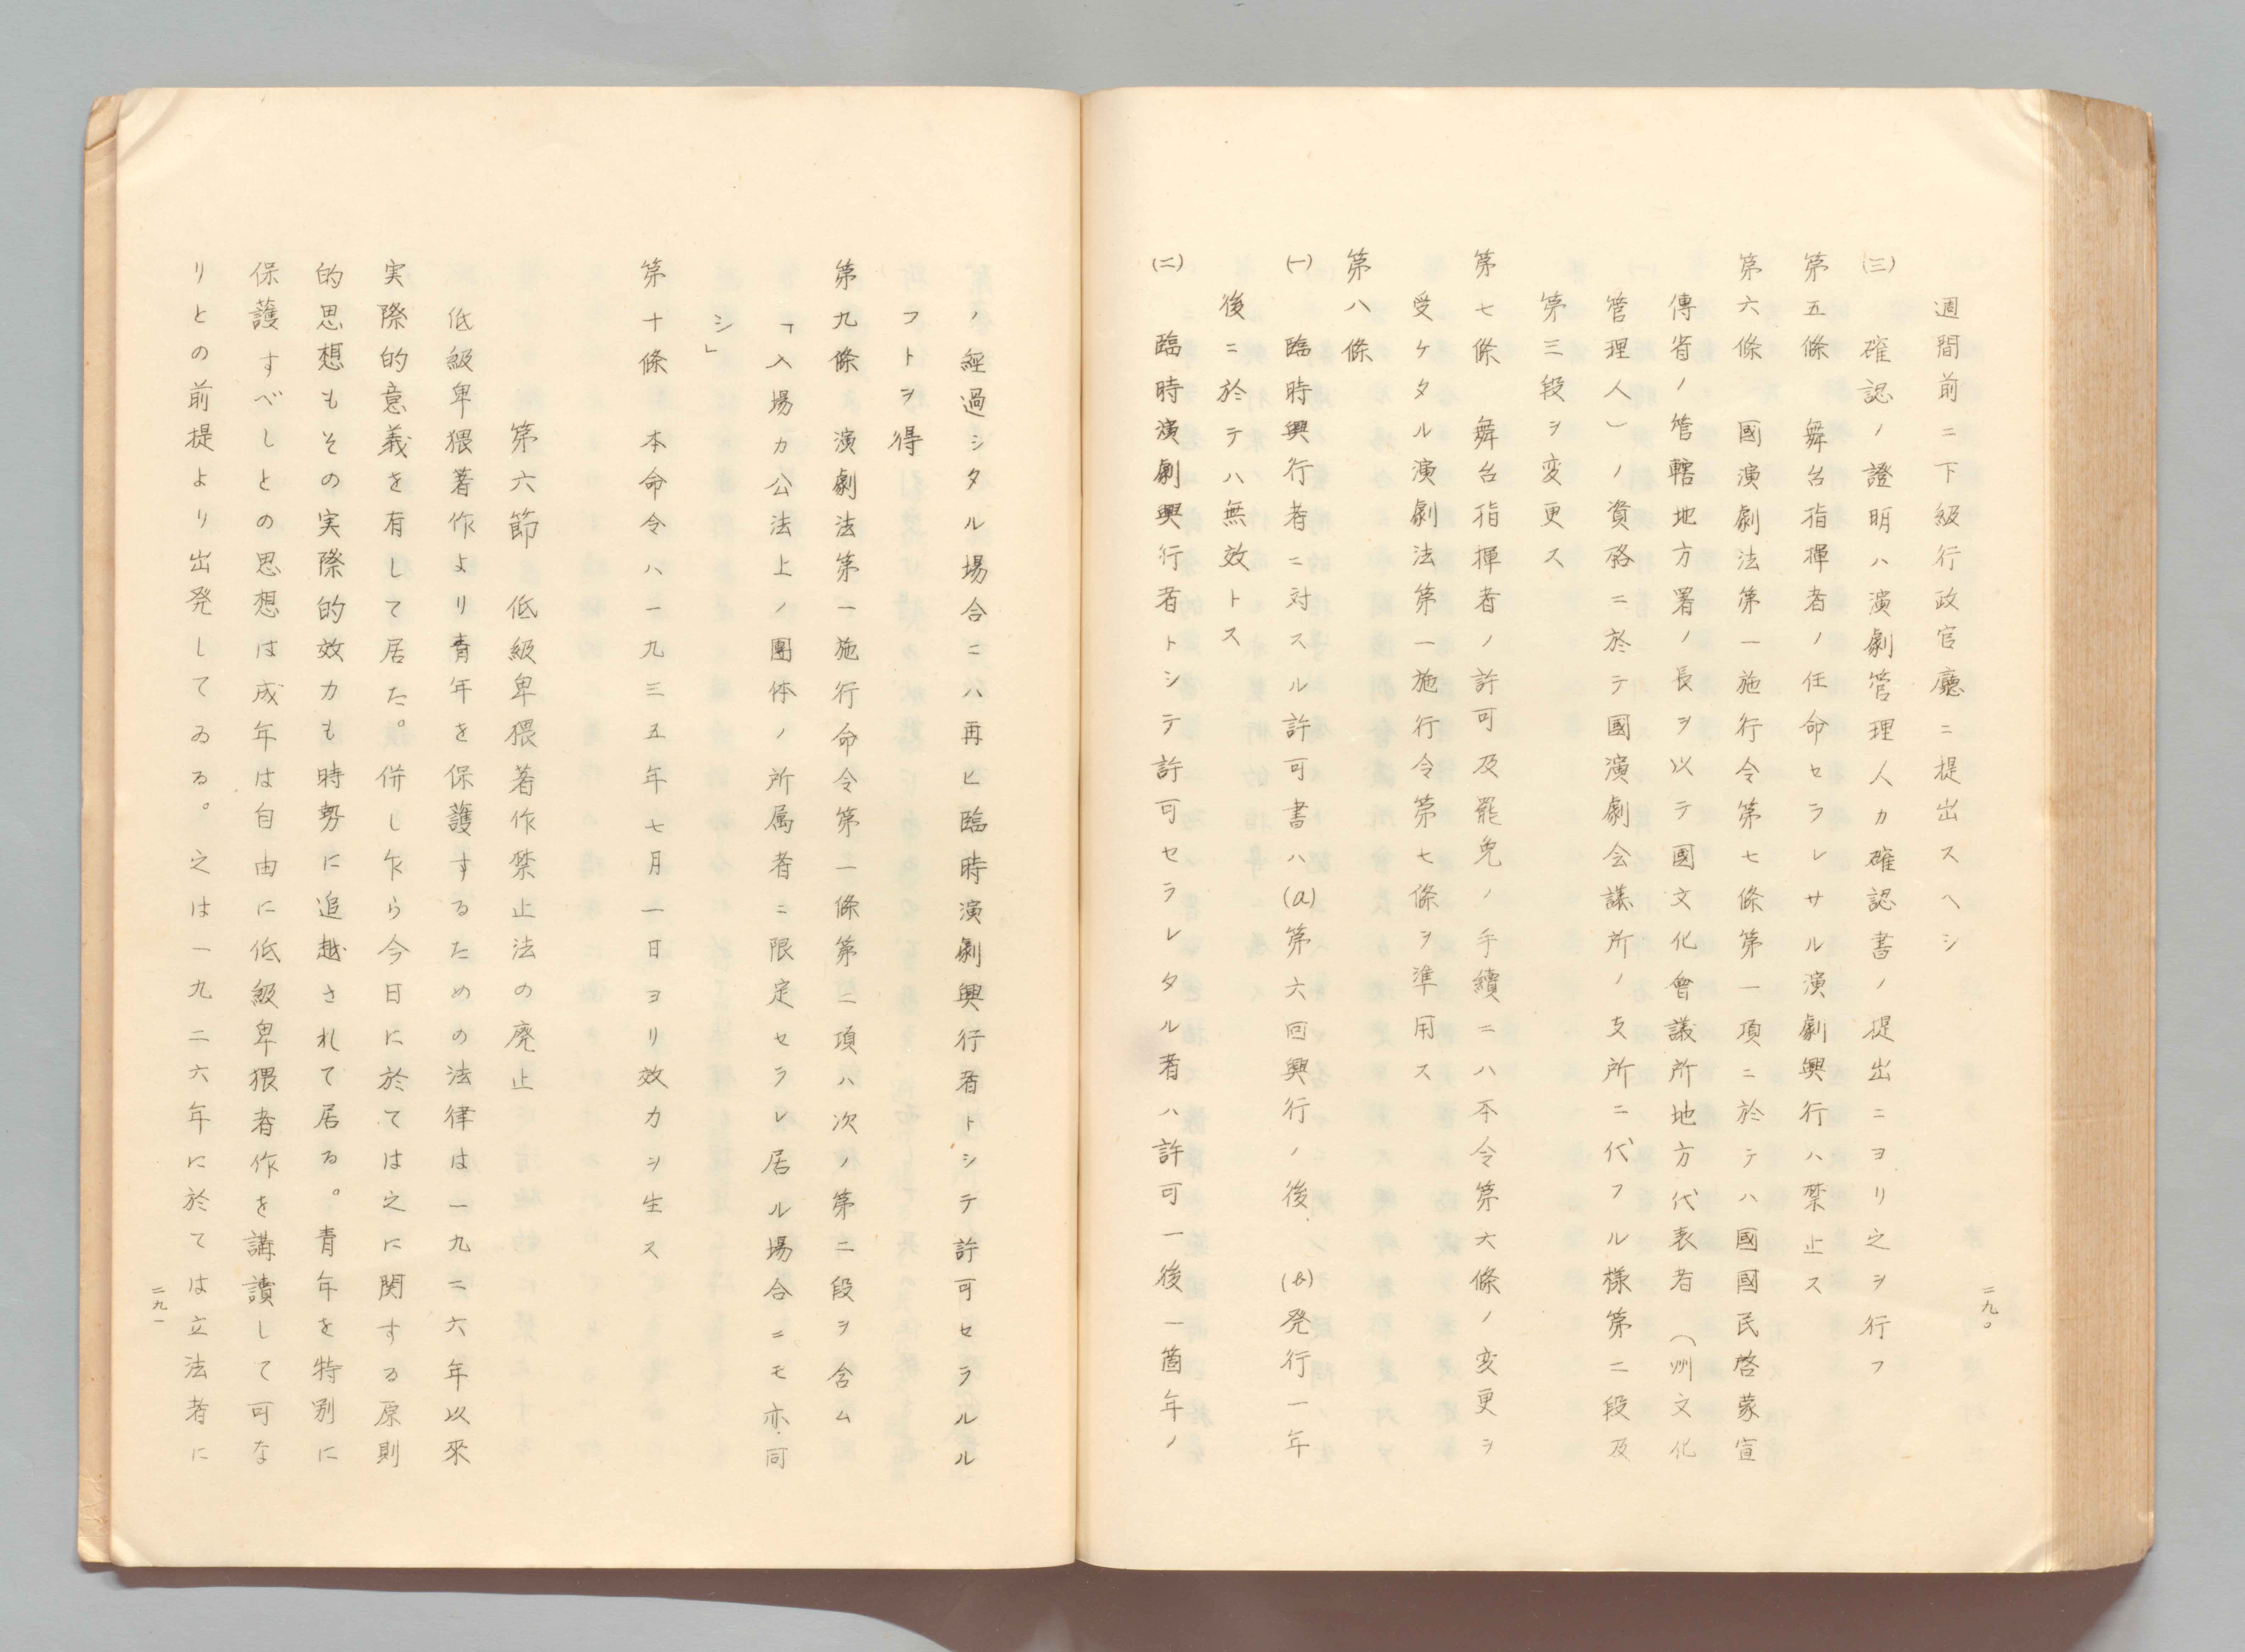 週間前ニ下級行政官廳ニ提出スヘシ
㈢　確認ノ證明ハ演劇管理人カ確認書ノ提出ニヨリ之ヲ行フ
第五條　舞台指揮者ノ任命セラレサル演劇興行ハ禁止ス
第六條　國演劇法第一施行令第七條第一項ニ於テハ國國民啓蒙宣
傳省ノ管轄地方署ノ長ヲ以テ國文化會議所地方代表者（州文化
管理人）ノ資格ニ於テ國演劇会議所ノ支所ニ代フル様第二段及
第三段ヲ変更ス
第七條　舞台指揮者ノ許可及罷免ノ手續ニハ本令第六條ノ変更ヲ
受ケタル演劇法第一施行令第七條ヲ準用ス
第八條
㈠　臨時興行者ニ対スル許可書ハ(a)第六回興行ノ後　(b)発行一年
後ニ於テハ無效トス
㈡　臨時演劇興行者トシテ許可セラレタル者ハ許可一後一箇年ノ
二九〇
ノ經過シタル場合ニハ再ヒ臨時演劇興行者トシテ許可セラルル
コトヲ得
第九條　演劇法第一施行命令第一條第二項ハ次ノ第二段ヲ含ム
「入場カ公法上ノ團体ノ所属者ニ限定セラレ居ル場合ニモ亦同
シ」
第十條　本命令ハ一九三五年七月一日ヨリ效力ヲ生ス
第六節　低級卑猥著作禁止法の廃止
低級卑猥著作より青年を保護するための法律は一九二六年以來
実際的意義を有して居た。併し乍ら今日に於ては之に関する原則
的思想もその実際的效力も時勢に追越されて居る。青年を特別に
保護すべしとの思想は成年は自由に低級卑猥著作を講讀して可な
りとの前提より出発してゐる。之は一九二六年に於ては立法者に
二九一